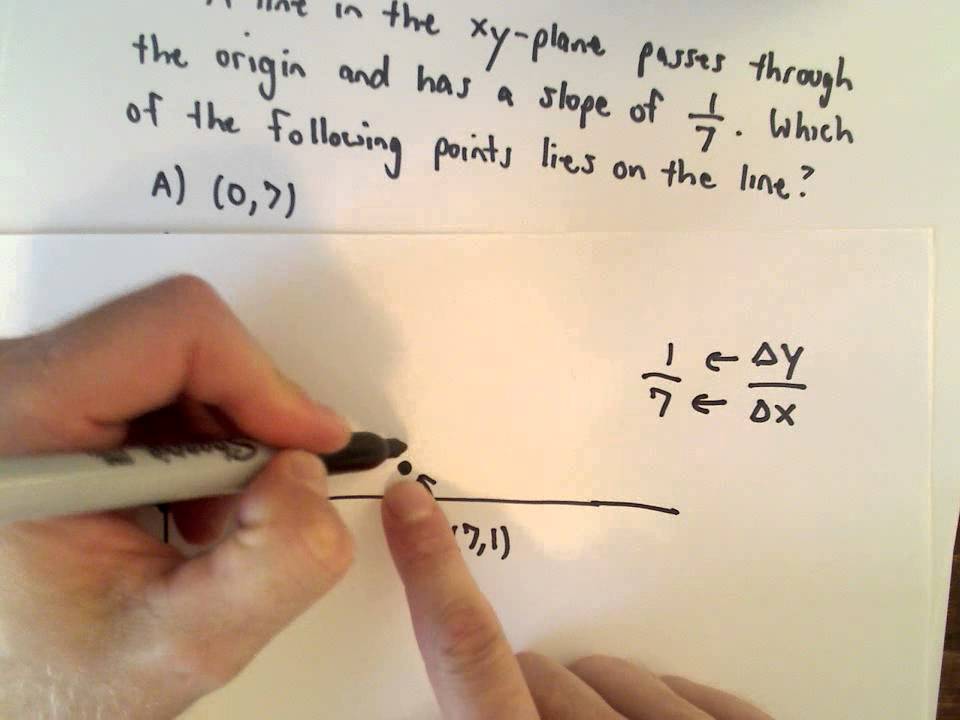 A line in the xy-plane passes through
the origin and has a slope of 1/7. Which
of the following points lies on the line?
A) (0,7)
1 ← Δy
7 ← Δx
(7,1)
Sharpie